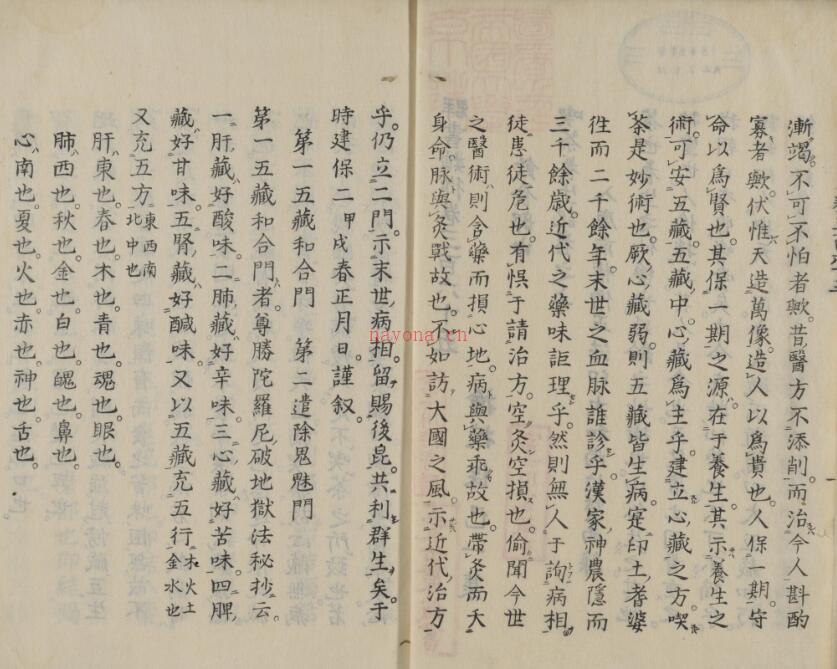 漸竭。不可不怕者歟。昔醫方不添削而治。今人斟酌
寡者歟。伏惟天造萬像。造人以爲貴也。人保一期。守
命以爲賢也。其保一期之源。在于養生。其示養生之
術。可安五藏。五藏中。心藏爲主乎。建立心藏之方。喫
茶是妙術也。厥心藏弱。則五藏皆生病。寔印土耆婆
徃而二千餘年。末世之血脉誰診乎。漢家神農隱而
三千餘歳。近代之藥味詎理乎。然則無人于詢病相。
徒患徒危也。有悞于請治方。空灸空損也。偷聞今世
之醫術。則含藥而損心地。病與藥乖故也。帶灸而夭
身命。脉與灸戰故也。不如訪大國之風。示近代治方
乎。仍立二門。示末世病相。留賜後昆。共利群生矣。于
時建保二甲戌春正月日。謹叙。
第一五藏和合門 第二遣除鬼魅門
第一五藏和合門者。尊勝陀羅尼破地獄法秘抄云。
一肝藏好酸味。二肺藏好辛味。三心藏好苦味。四脾
藏好甘味。五腎藏好鹹味。又以五藏充五行木火土金水也
又充五方東西南北中也
肝。東也。春也。木也。青也。魂也。眼也。
肺。西也。秋也。金也。白也。魄也。鼻也。
心。南也。夏也。火也。赤也。神也。舌也。
nayona.cn